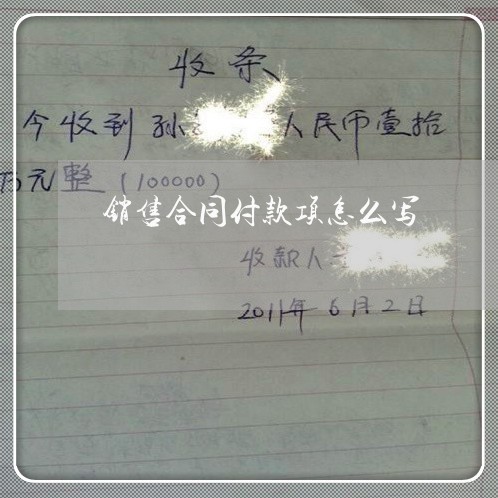 收条
今收到孙 人民币壹拾
万元整(100000)
销售合同付款项怎么写
收款人
2011年6月2日